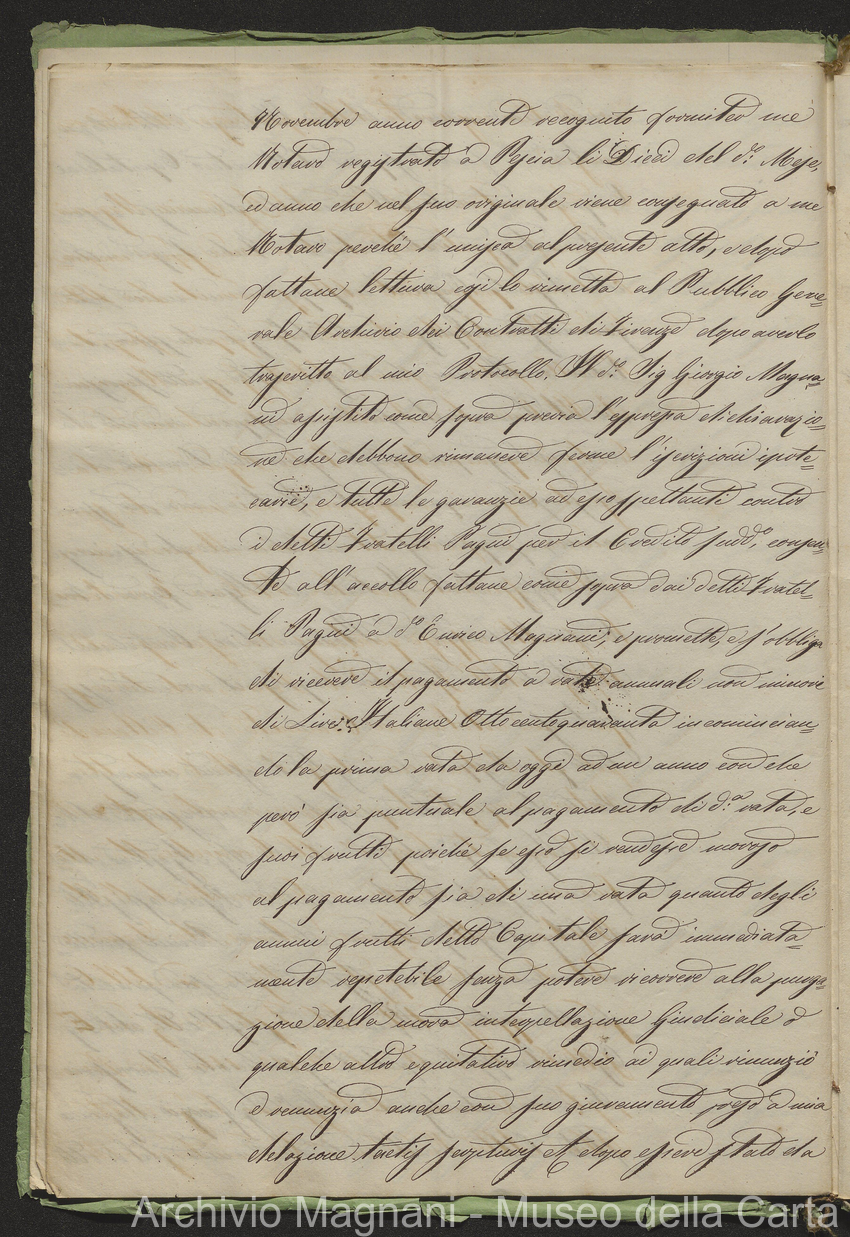 Novembre anno corrente recognito fornito me
Notaro registrato a Pescia li Dieci del d.o Mese,
ed anno che nel suo originale viene consegnato a me
Notaro perché l'unisca al presente atto, e dopo
fattane lettura egi lo rimetta al Pubblico Gene=
rale Archivio dei Contratti di Firenze dopo averlo
trascritto al mio Protocollo. Il d.o Sig Giorgio Magna=
ni assistito come sopra previa l'espressa dichiarazio=
ne che debbono rimanere ferme l'iscrizioni ipote=
carie, e tutte le garanzie ad esso spettanti contro
i detti Fratelli Pagni per il Credito sudd.o, consen=
te all'accollo fattane come sopra dai detti Fratel=
li Pagni a d.o Enrico Magnani, e promette, e s'obbliga
di ricevere il pagamento a rate annuali non minori
di Lire Italiane Ottocentoquaranta incomincian=
do la prima rata da oggi ad un anno con che
però sia puntuale al pagamento di d.a rata, e
suoi frutti poiché se esso si rendesse moroso
al pagamento sia di una rata quanto degli
annui frutti detto Capitale sarà immediata=
mente repetebile senza potere ricorrere alla purga=
zione della mora interpellazione Giudiciale o
qualche altro equitativo rimedio ai quali rinunziò
e renunzia anche con suo giuramento preso a mia
delazione tactis scripturis et dopo essere stato da
Archivio Magnani - Museo della Carta